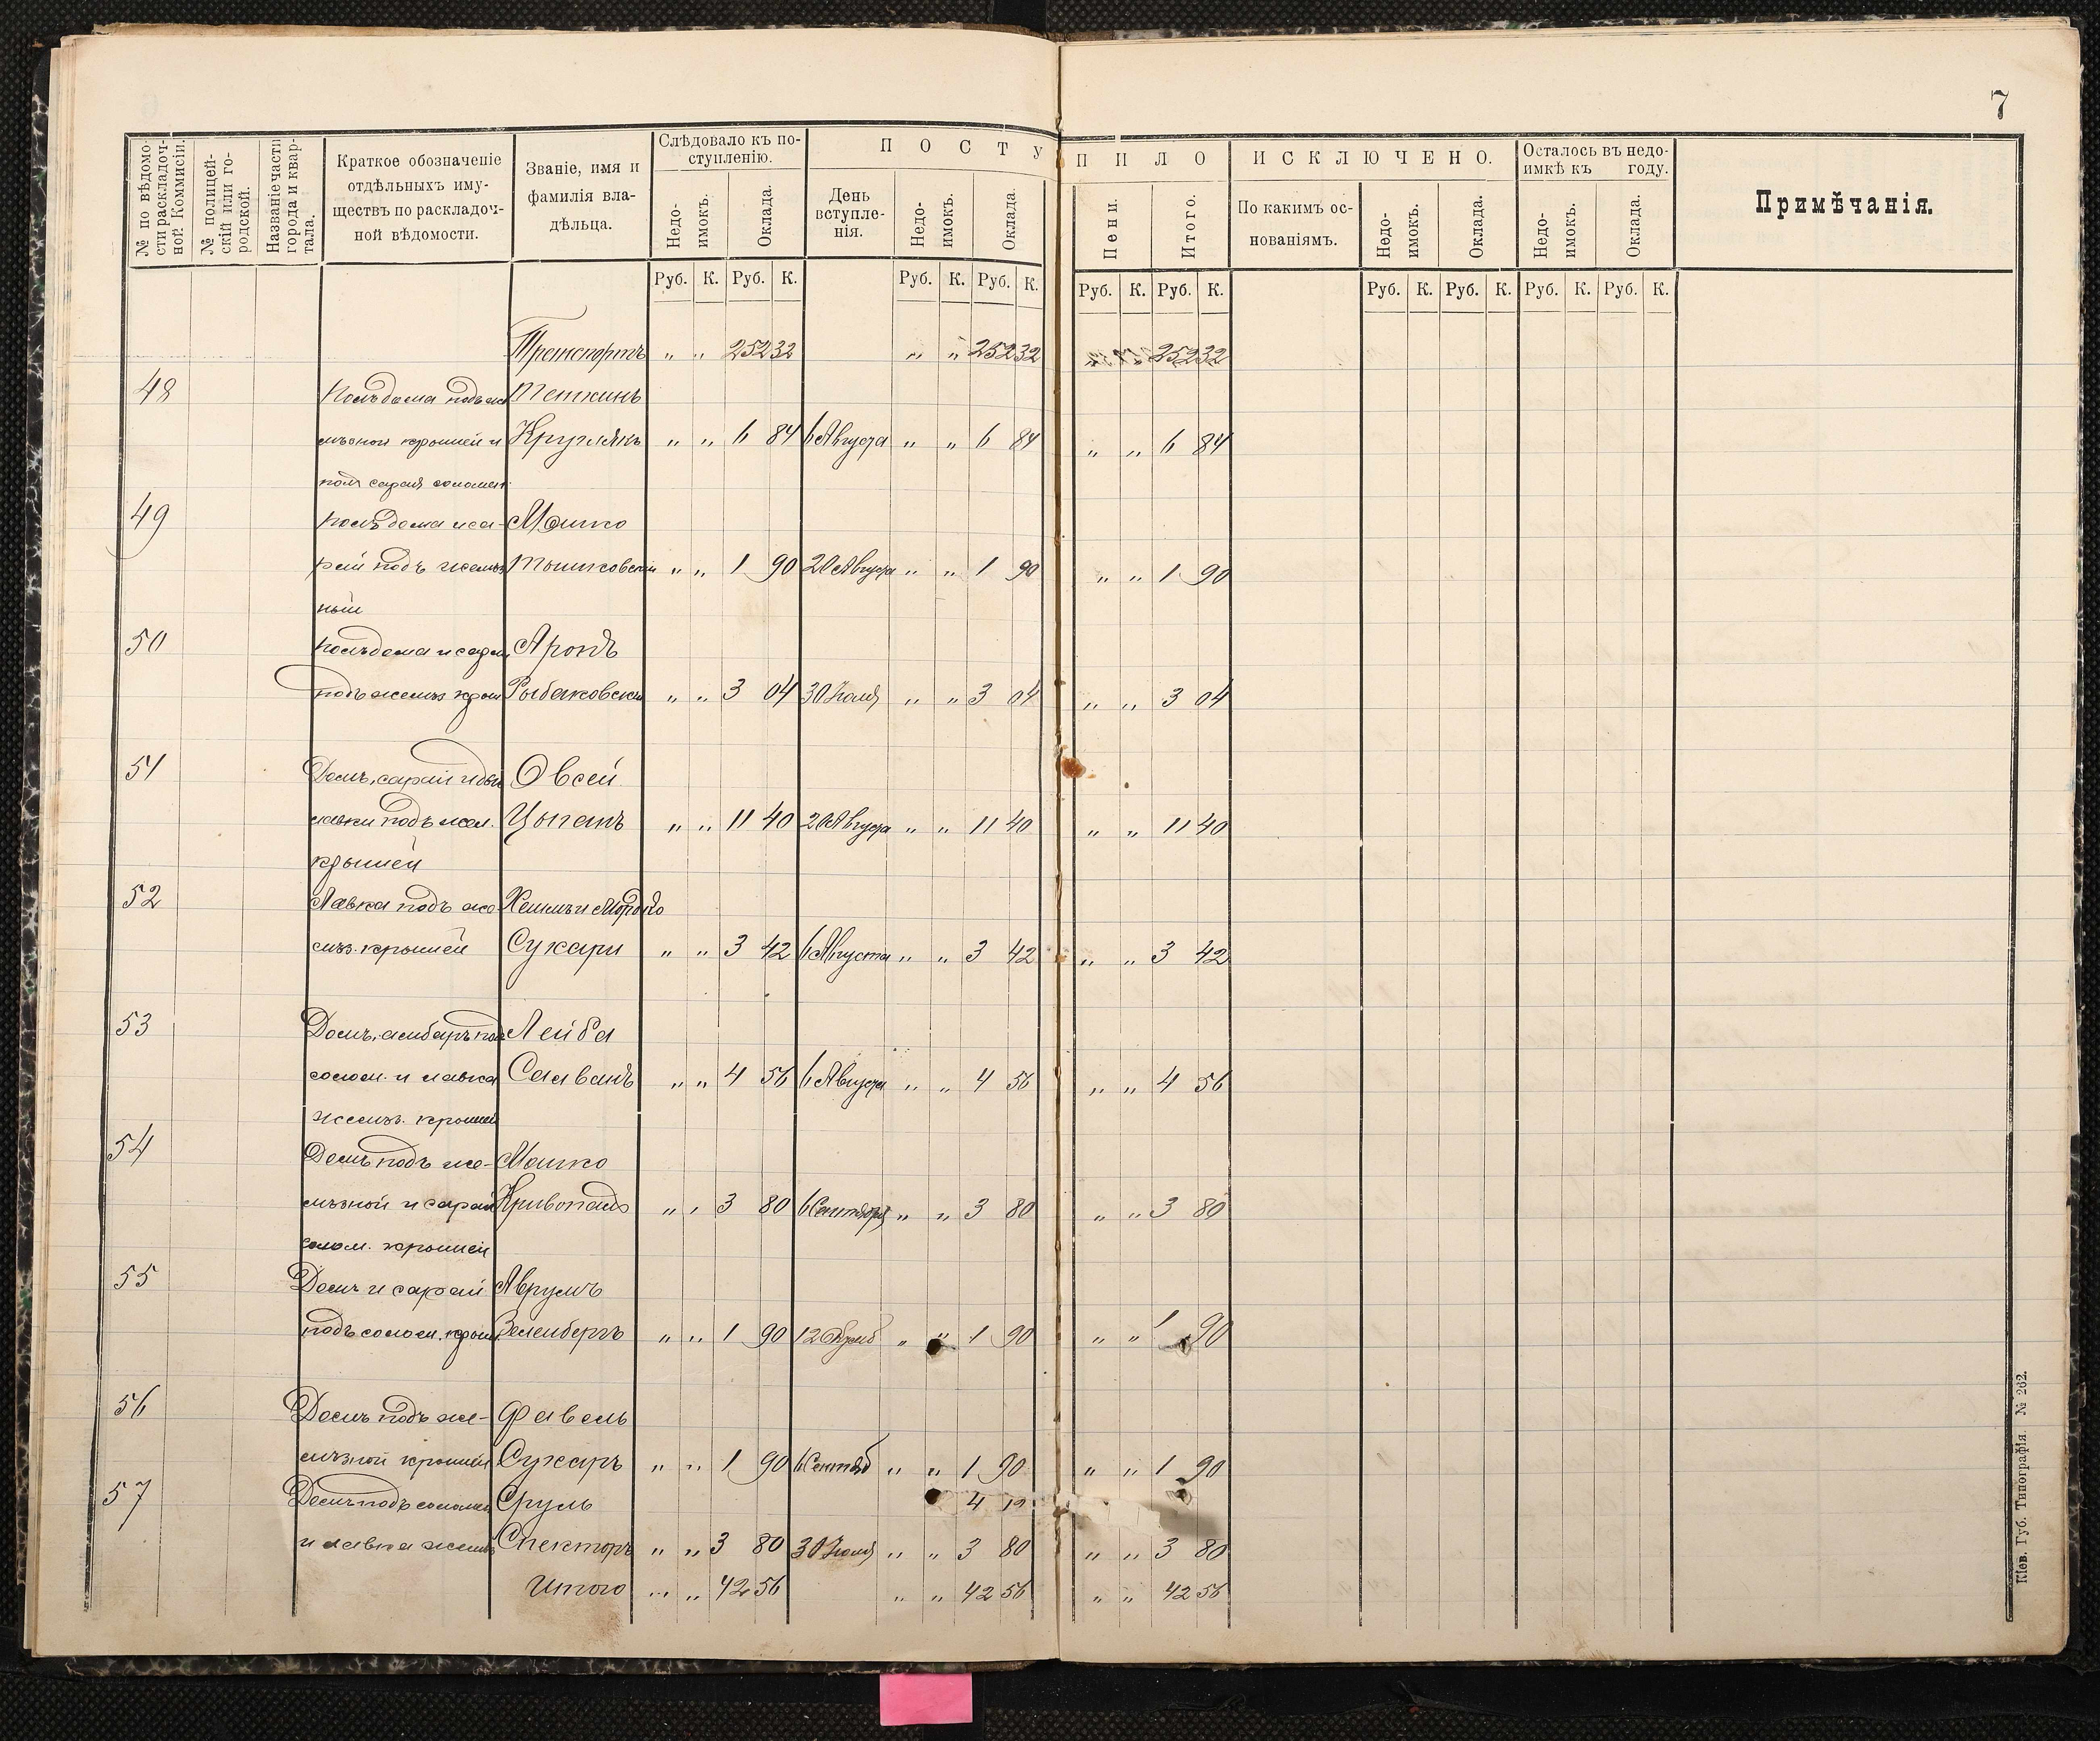 7
№ по вѣдомости раскладочной Коммисіи.
№ полицейскій или городской.
Названіе части города и квартала.
Краткое обозначеніе отдѣльныхъ имуществъ по раскладочной вѣдомости.
Званіе, имя и фамилія владѣльца.
Слѣдовало къ поступленію.
Недоимокъ.
Оклада.
ПОСТУПИЛО
День вступленія.
Недоимокъ.
Оклада.
Пени.
Итого.
ИСКЛЮЧЕНО.
По какимъ основаніямъ.
Недоимокъ.
Оклада.
Осталось въ недоимкѣ къ году.
Недоимокъ.
Оклада.
Примѣчанія.
Руб. К. Руб. К. Руб. К. Руб. К. Руб. К. Руб. К. Руб. К. Руб. К. Руб. К. Руб. К.
Транспортъ " " 252 32 " " 252 32 252 32
48 Полъ дома подъ же-
лѣзной крышей и Кругляк " " 6 84 6 Августа " " 6 84 " " 6 84
пол сарая соломен
49 Полъ дома и са- Мошко
рай подъ желѣз Мошковскій " " 1 90 20 Августа " " 1 90 " " 1 90
ный
50 Полъ дома и сарая Аронъ
подъ желѣз крыш Рыбаковскій " " 3 04 30 Іюля " " 3 04 " " 3 04
51 Домъ, сарай и двѣ Овсей
лавки подъ жел. Цыганъ " " 11 40 20 Августа " " 11 40 " " 11 40
крышей
52 Лавка подъ же- и Мордко
лѣз. крышей Сухари " " 3 42 6 Августа " " 3 42 " " 3 42
53 Домъ, амбаръ под Лейба
солом. и лавка Салванъ " " 4 56 6 Августа " " 4 56 " " 4 56
желѣз. крышей
54 Домъ подъ же- Мошко
лѣзной и сарай " " 3 80 6 Сентября " " 3 80 " " 3 80
солом. крышей
55 Домъ и сарай Аврумъ
подъ солом. крыш Зеленбергъ " " 1 90 12 " " 1 90 " " 1 90
56 Домъ подъ же- Фавель
лѣзной крышей Сухаръ " " 1 90 6 Сентяб " " 1 90 " " 1 90
57 Домъ подъ соломен Сруль
4
и лавка желѣз Спекторъ " " 3 80 30 Іюля " " 3 80 " " 3 80
Итого " " 42 56 " " 42 56 " " 42 56
Кіев. Губ. Типографія. № 262.